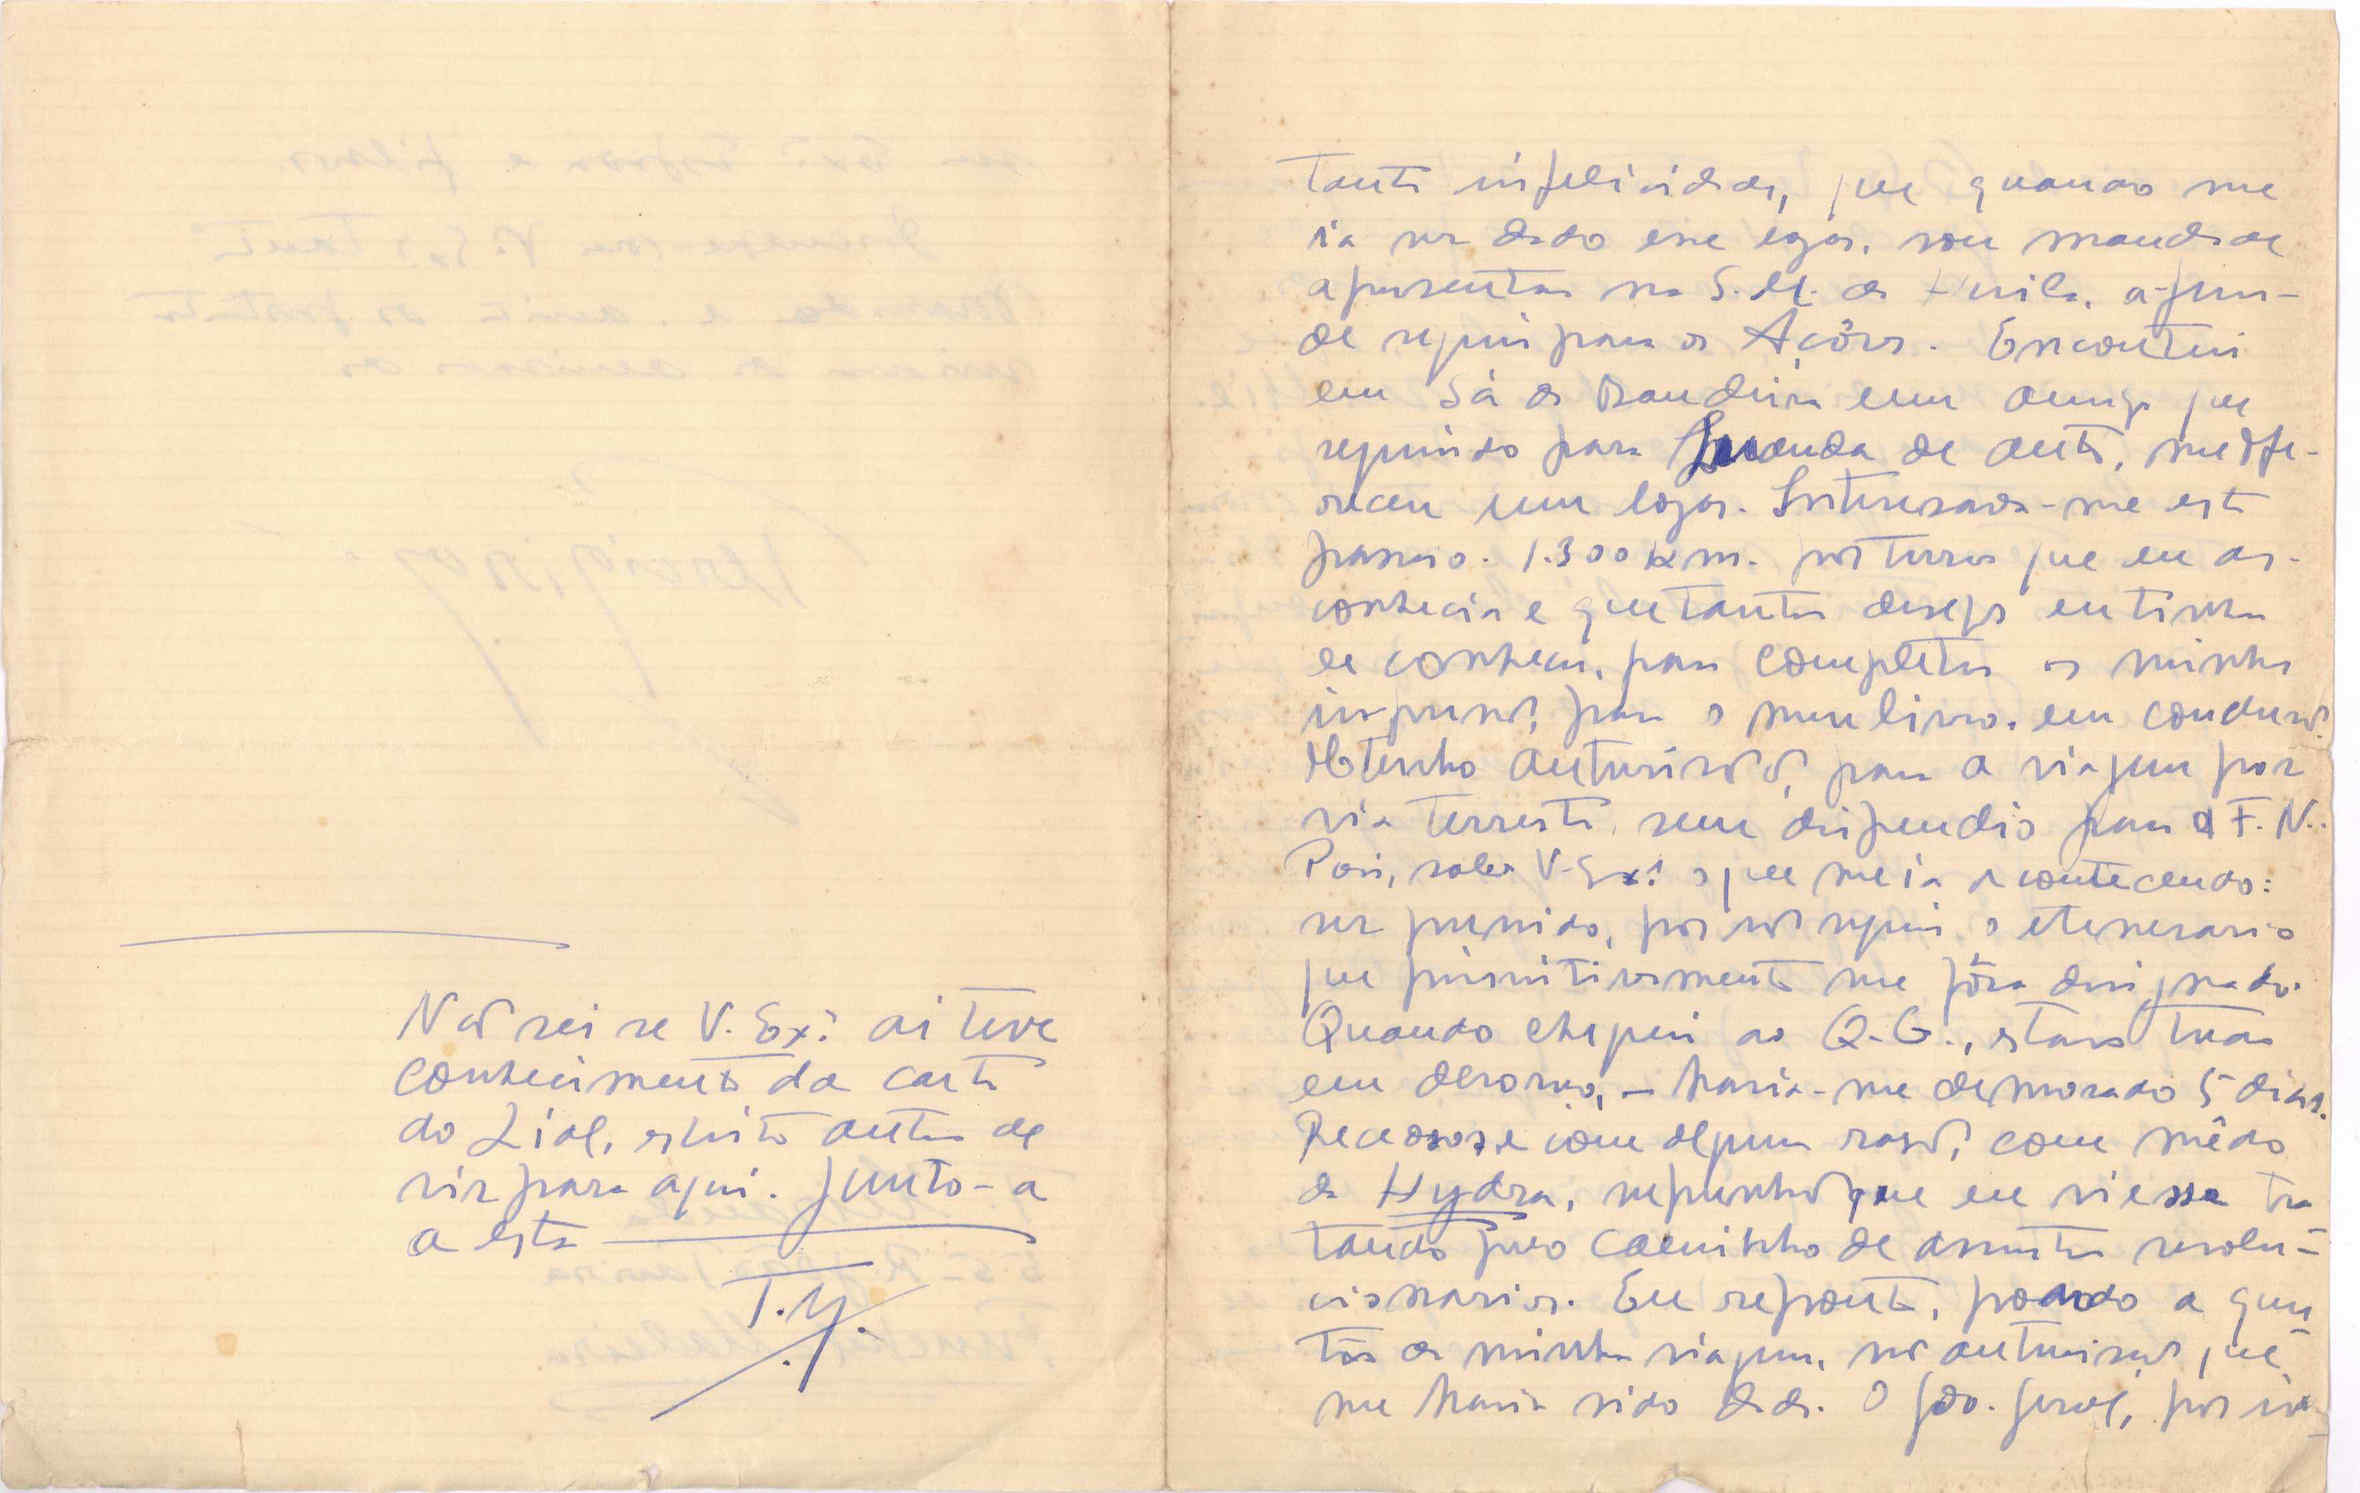 Não sei se V. Exª ai teve
conhecimento da carta
do Lial, escrito antes de
vir para aqui. Junto-a
a esta
T.M.
tanta infelicidade, que quando me
ia ser dado esse logar, sou mandado
apresentar na S. M. da Huila, a-fim-
de seguir para os Açôres. Encontrei
em Sá da Bandeira um amigo que
seguindo para Luanda de auto, me ofe-
receu um logar. Interessava-me este
passeio. 1.300 km. por terras que eu des-
conhecia e que tanto desejo eu tinha
de conhecer, para completar as minhas
impressões para o meu livro, em conclusão.
Obtenho autorisação para a viagem por
via terrestre, sem dispendio para a F. N..
Pois, saiba V. Exª o que me ia acontecendo:
ser punido, por não seguir o etenerario
que primitivamente me fôra designado.
Quando cheguei ao Q.G., estava tudo
em alvoroço, - havia-me demorado 5 dias.
Receosos, e com alguma rasão, com mêdo
da Hydra, supunham que eu viesse tra
tando pelo caminho de assuntos revolu-
cionarios. Eu reponto, pondo a ques
tão da minha viagem, na autorisação que
me havia sido dada. O Gdo. geral, por in-